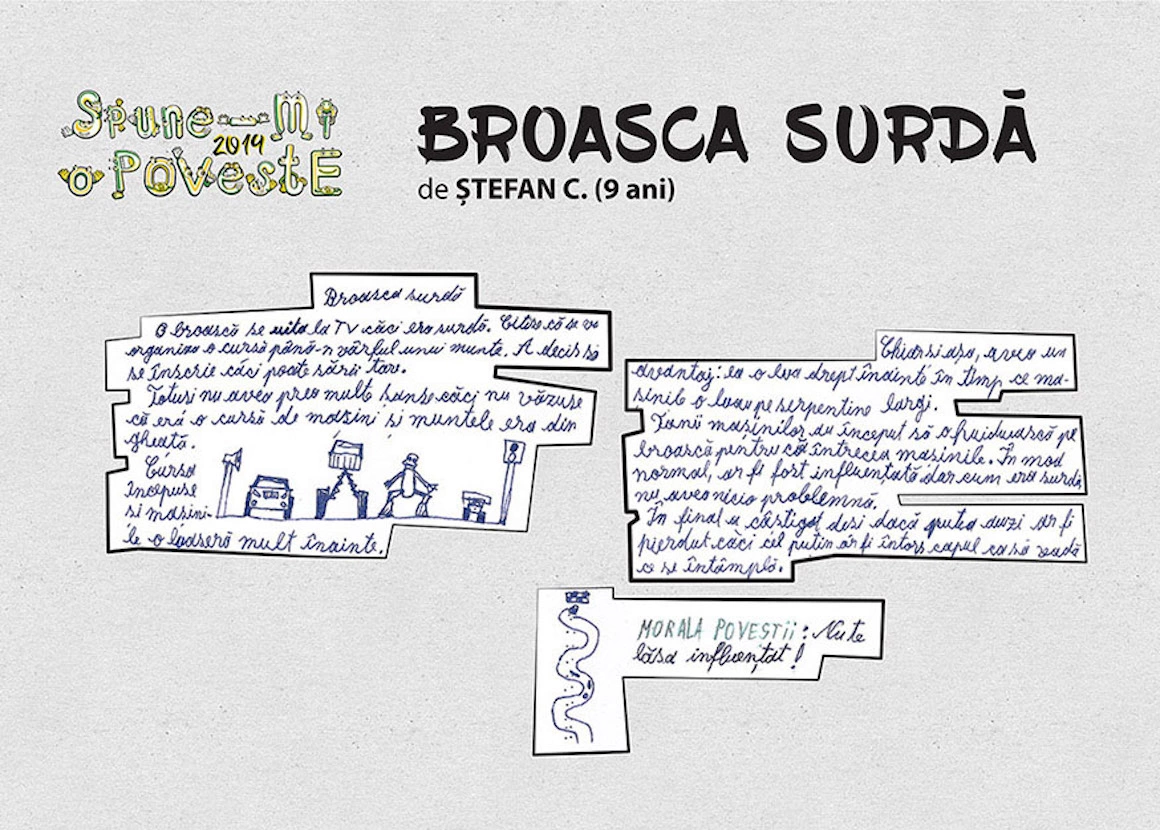 Spune-Mi
2019
o POVEstE
BROASCA SURDĂ
de ȘTEFAN C. (9 ani)
Broasca surdă
O broască se uita la TV căci era surdă. Citise că se va
organiza o cursă până-n vârful unui munte. A decis să
se înscrie căci poate sări tare.
Totuși nu avea prea multe șanse căci nu văzuse
că era o cursă de mașini și muntele era din
gheață.
Cursa
începuse
și mașini-
le o loaseră mult înainte.
Chiar și așa, avea un
avantaj: ea o lua drept înainte în timp ce ma-
șinile o luau pe serpentine largi.
Fanii mașinilor au început să o huiduiască pe
broască pentru că întrecea mașinile. În mod
normal, ar fi fost influentată dar cum era surdă,
nu avea nicio problemnă.
În final a câstigat desi dacă putea auzi ar fi
pierdut căci cel puțin ar fi întors capul ca să vadă
ce se întâmplă.
MORALA POVESTII: Nu te
lăsa influențat!